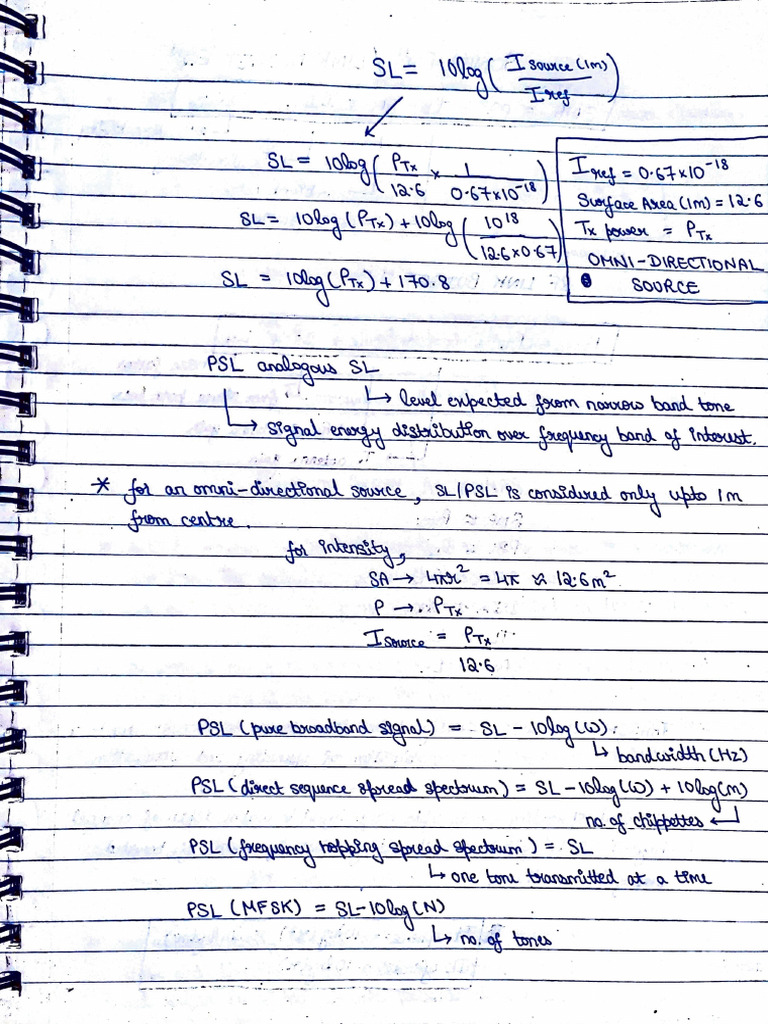 SL = 10log( I source (1m) / I ref )
SL = 10log( P_Tx / 12.6 × 1 / 0.67×10^-18 )
I ref = 0.67×10^-18
Surface Area (1m) = 12.6
Tx power = P_Tx
OMNI-DIRECTIONAL
SOURCE
SL = 10log(P_Tx) + 10log( 10^18 / 12.6×0.67 )
SL = 10log(P_Tx) + 170.8
PSL analogous SL
↳ level expected from narrow band tone
↳ signal energy distribution over frequency band of interest.
* for an omni-directional source, SL/PSL is considered only upto 1m
from centre.
for intensity,
SA → 4πr² = 4π ≈ 12.6m²
P → P_Tx
I source = P_Tx / 12.6
PSL (pure broadband signal) = SL - 10log(W)
↳ bandwidth (Hz)
PSL (direct sequence spread spectrum) = SL - 10log(W) + 10log(m)
no. of chippettes ↵
PSL (frequency hopping spread spectrum) = SL
↳ one tone transmitted at a time
PSL (MFSK) = SL - 10log(N)
↳ no. of tones